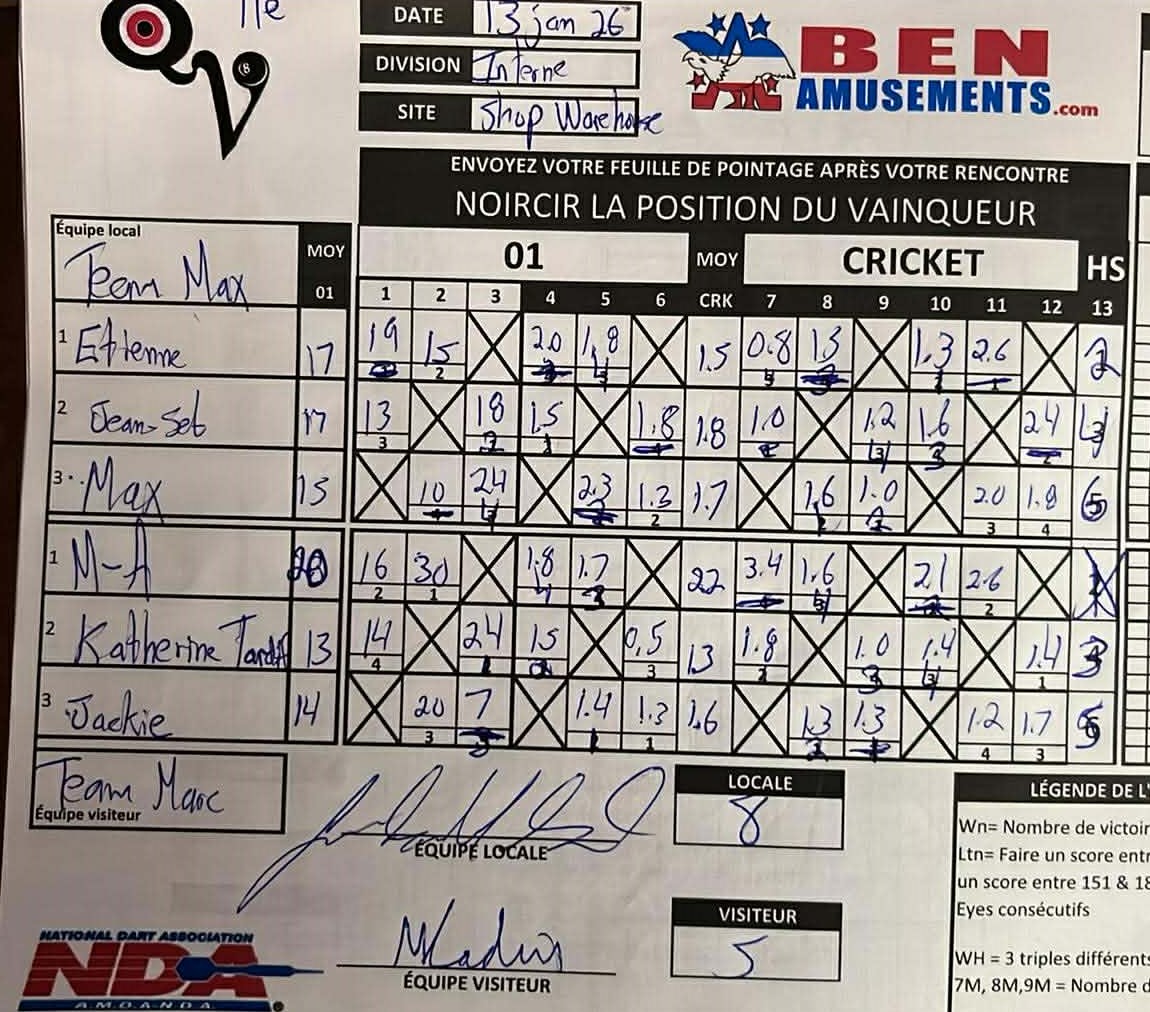 11e
QV
8
DATE 13 jan 26
DIVISION Interne
SITE Shop Warehouse
BEN
AMUSEMENTS.com
ENVOYEZ VOTRE FEUILLE DE POINTAGE APRÈS VOTRE RENCONTRE
NOIRCIR LA POSITION DU VAINQUEUR
Équipe local
Team Max
MOY 01 MOY CRICKET HS
01 1 2 3 4 5 6 CRK 7 8 9 10 11 12 13
1 Etienne 17 19 15 20 1,8 1.5 0.8 1.3 1.3 2.6
2
2 Jean-Seb 17 13 18 1.5 1.8 1.8 1.0 1.2 1.6 2.4
3
3 Max 15 10 24 2.3 1.3 1.7 1.6 1.0 2.0 1.8
2 3 4
1 M-A 16 30 1.8 1.7 22 3.4 1.6 2.1 2.6
2 1 2
2 Katherine 13 14 24 15 0,5 13 1.8 1.0 1.4 1.4
4 3 1
3 Jackie 14 20 7 1.4 1.3 1.6 1.3 1.3 1.2 1.7
3 1 4 3
Team Marc
Équipe visiteur
LOCALE
8
ÉQUIPE LOCALE
VISITEUR
5
ÉQUIPE VISITEUR
NATIONAL DART ASSOCIATION
NDA
A.M.O.A-N.D.A.
LÉGENDE DE L'
Wn= Nombre de victoir
Ltn= Faire un score entr
un score entre 151 & 18
Eyes consécutifs
WH = 3 triples différents
7M, 8M,9M = Nombre d